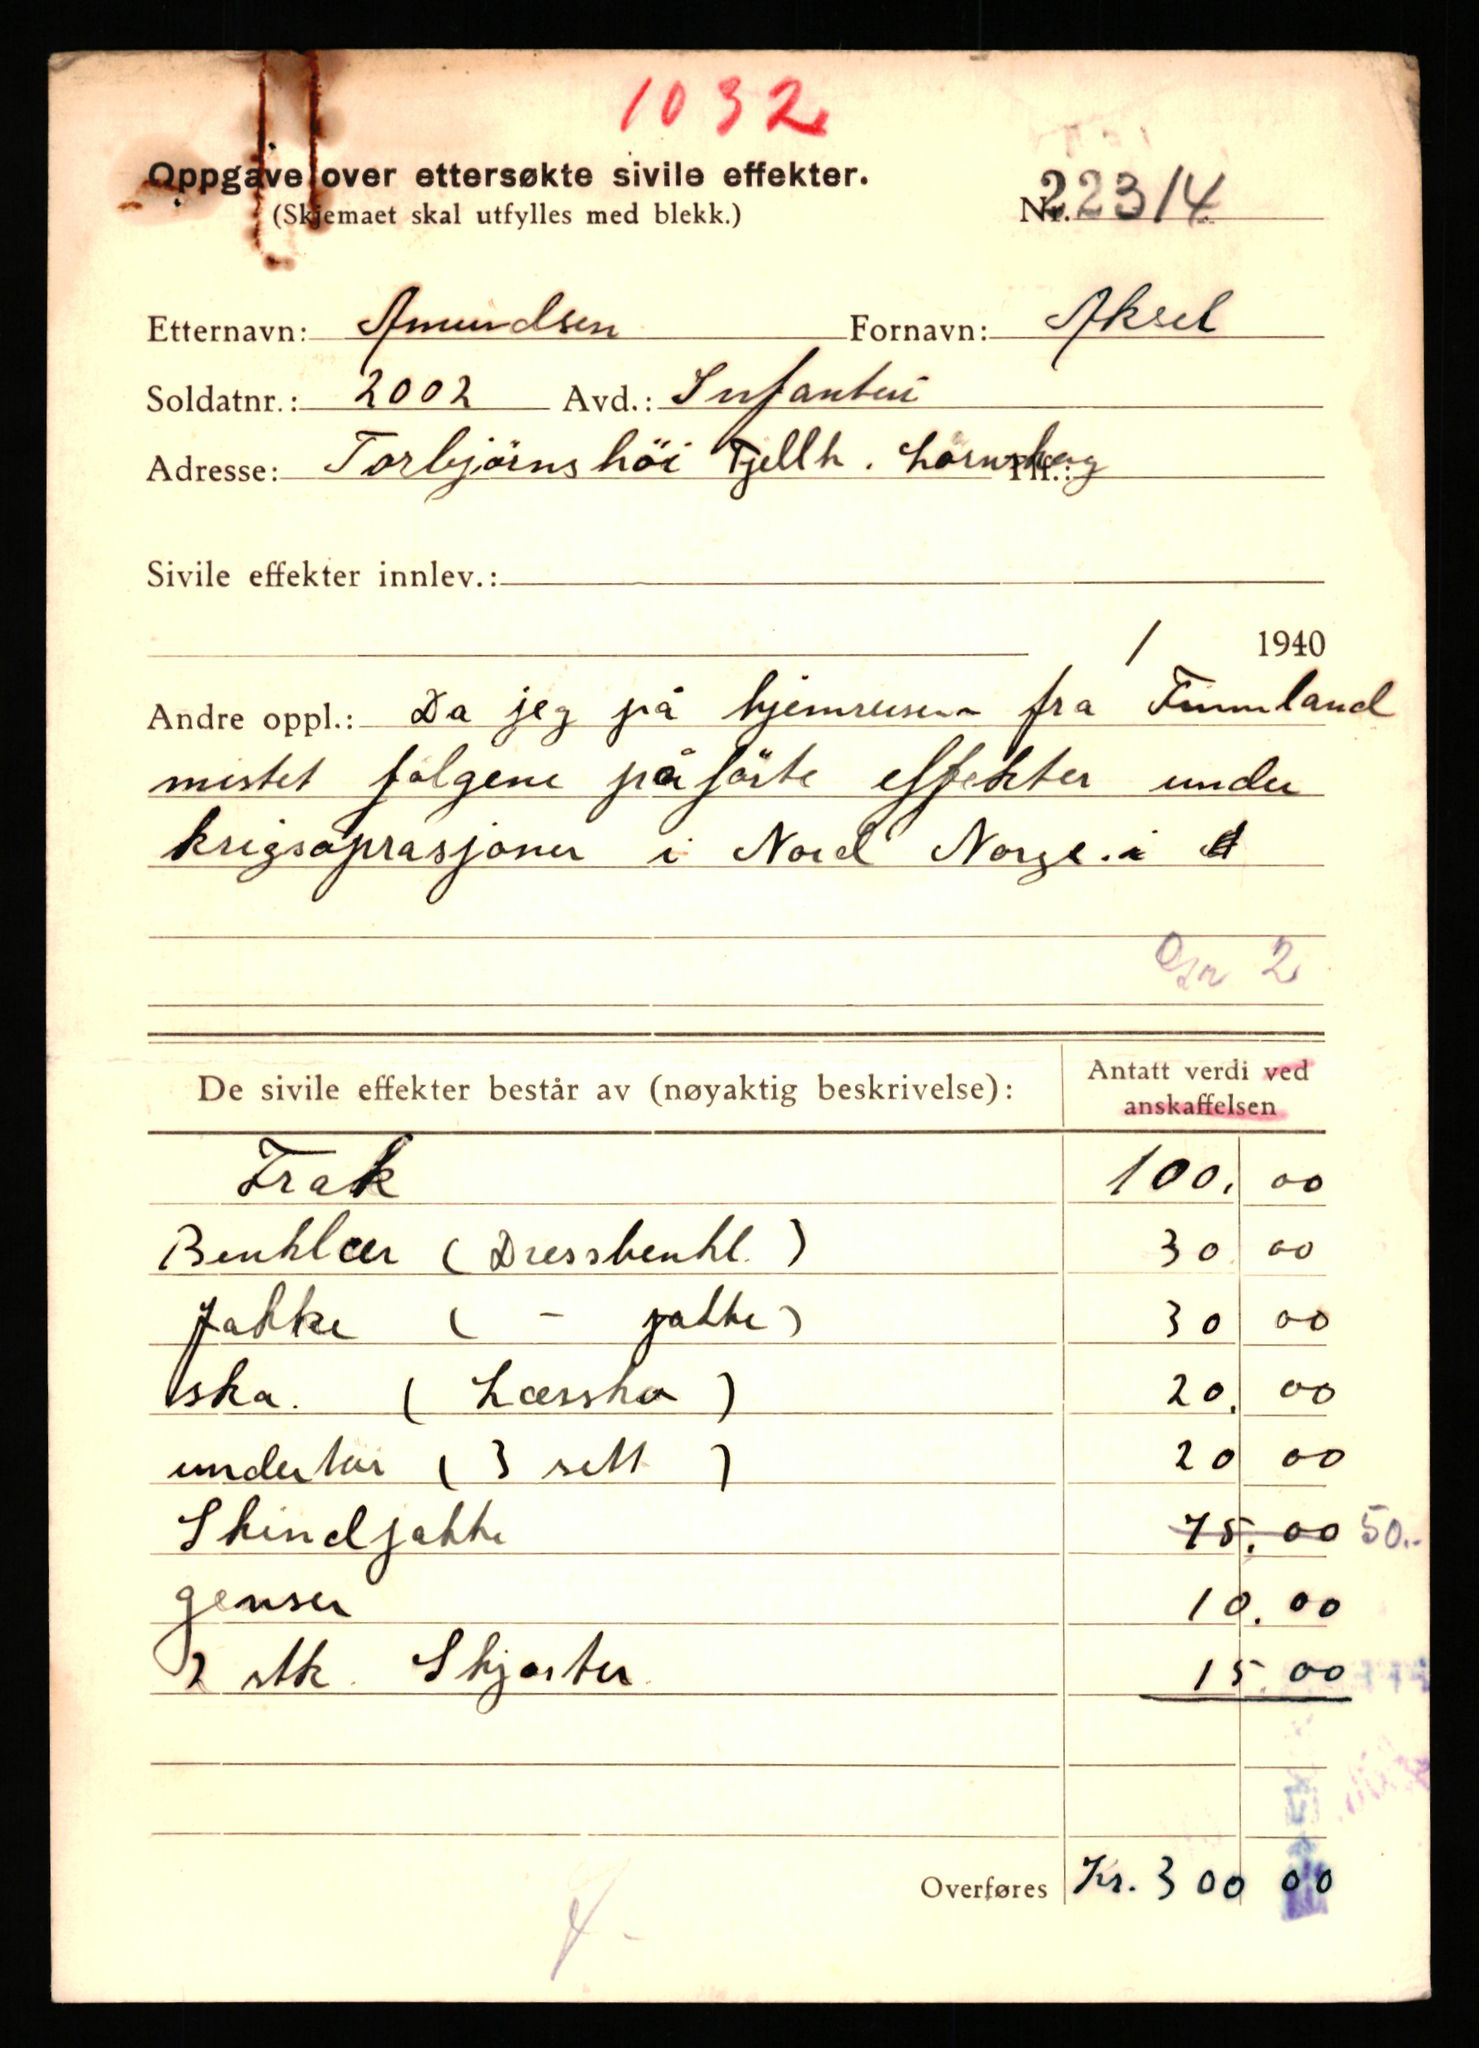 1032
Oppgave over ettersøkte sivile effekter.
(Skjemaet skal utfylles med blekk.)
Nr. 22314
Etternavn: Amundsen Fornavn: Aksel
Soldatnr.: 2002 Avd.: Infanteri
Adresse: Torbjörnshöi Fjellh. Tlf.:
Sivile effekter innlev.:
/ 1940
Andre oppl.: Da jeg på hjemreisen fra Finnland
mistet følgene påförte effekter under
krigsoprasjoner i Nord Norge. i
Gr 2
De sivile effekter består av (nøyaktig beskrivelse): Antatt verdi ved anskaffelsen
Frak 100.00
Benklær (Dressbenkl.) 30 00
Jakke ( - jakke) 30 00
sko. (Læssko) 20.00
undertöi (3 sett) 20 00
Skindjakke 75.00 50.-
genser 10.00
2 stk. Skjorter 15.00
Overføres Kr. 300 00